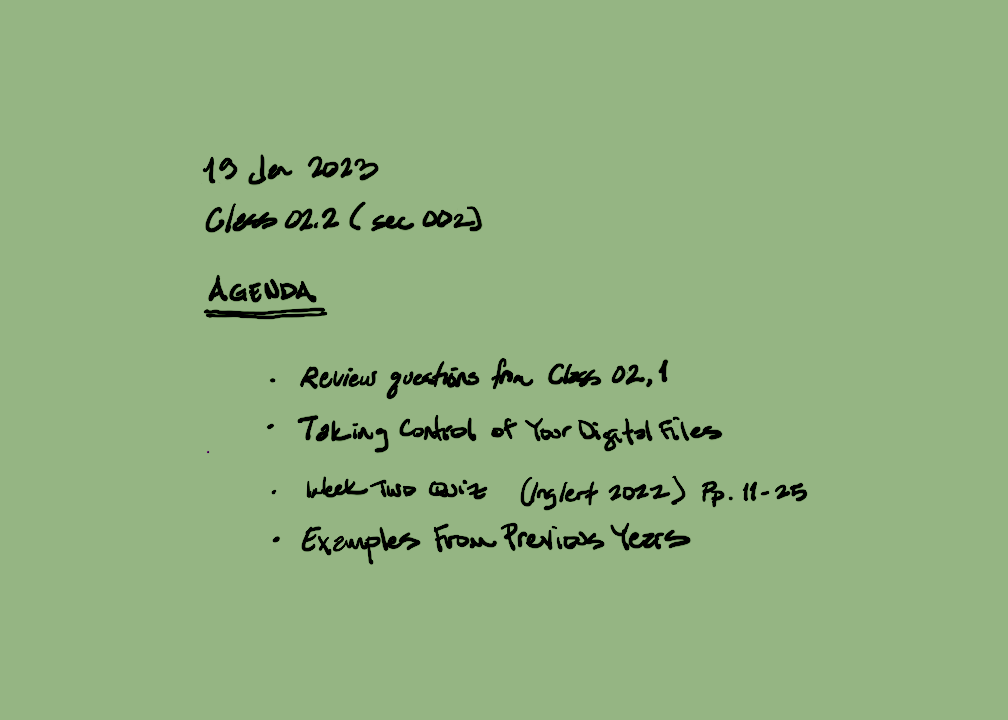 19 Jan 2023
Class 02.2 (sec 002)
AGENDA
· Review questions from Class 02.1
· Taking Control of Your Digital Files
· Week Two Quiz (Inglert 2022) Pp. 11-25
· Examples From Previous Years